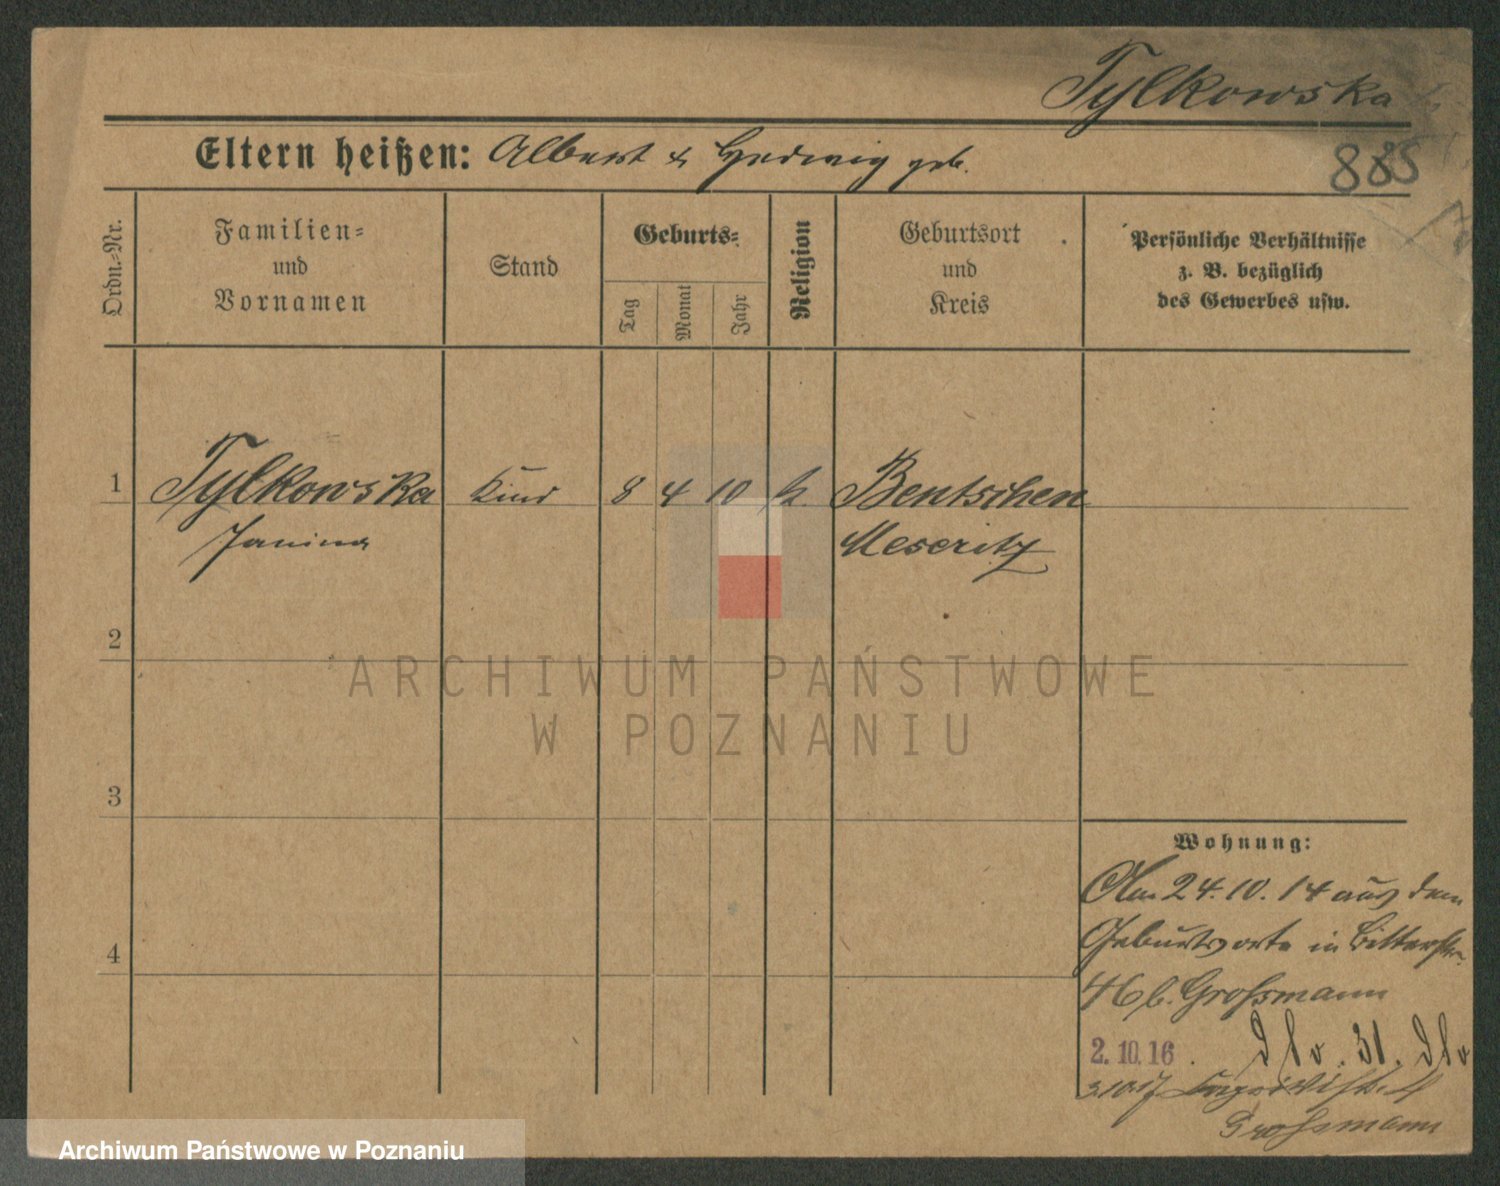 Tylkowska
Eltern heißen: Albert & Hedwig geb.
885
Ordn.-Nr.
Familien-
und
Vornamen
Stand
Geburts-
Tag
Monat
Jahr
Religion
Geburtsort
und
Kreis
Persönliche Verhältnisse
z. B. bezüglich
des Gewerbes usw.
1 Tylkowska Kind 8 4 10 k. Bentschen
Janina Meseritz
2
ARCHIWUM PAŃSTWOWE
W POZNANIU
3
Wohnung:
Am 24.10.14 aus dem
Geburtsorte in Bitterstr.
4
46 b. Großmann
2.10.16. 31.
3.10.17
Großmann
Archiwum Państwowe w Poznaniu